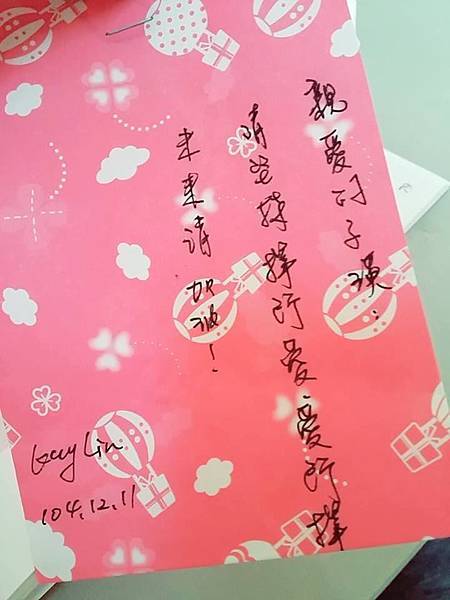 親愛的子瑛：
請堅持擇所愛、愛所擇
未來請加油！
Lin
104.12.11